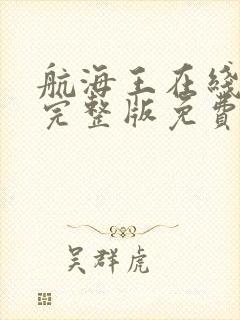 航海王在线
完整版免費
吴群虎